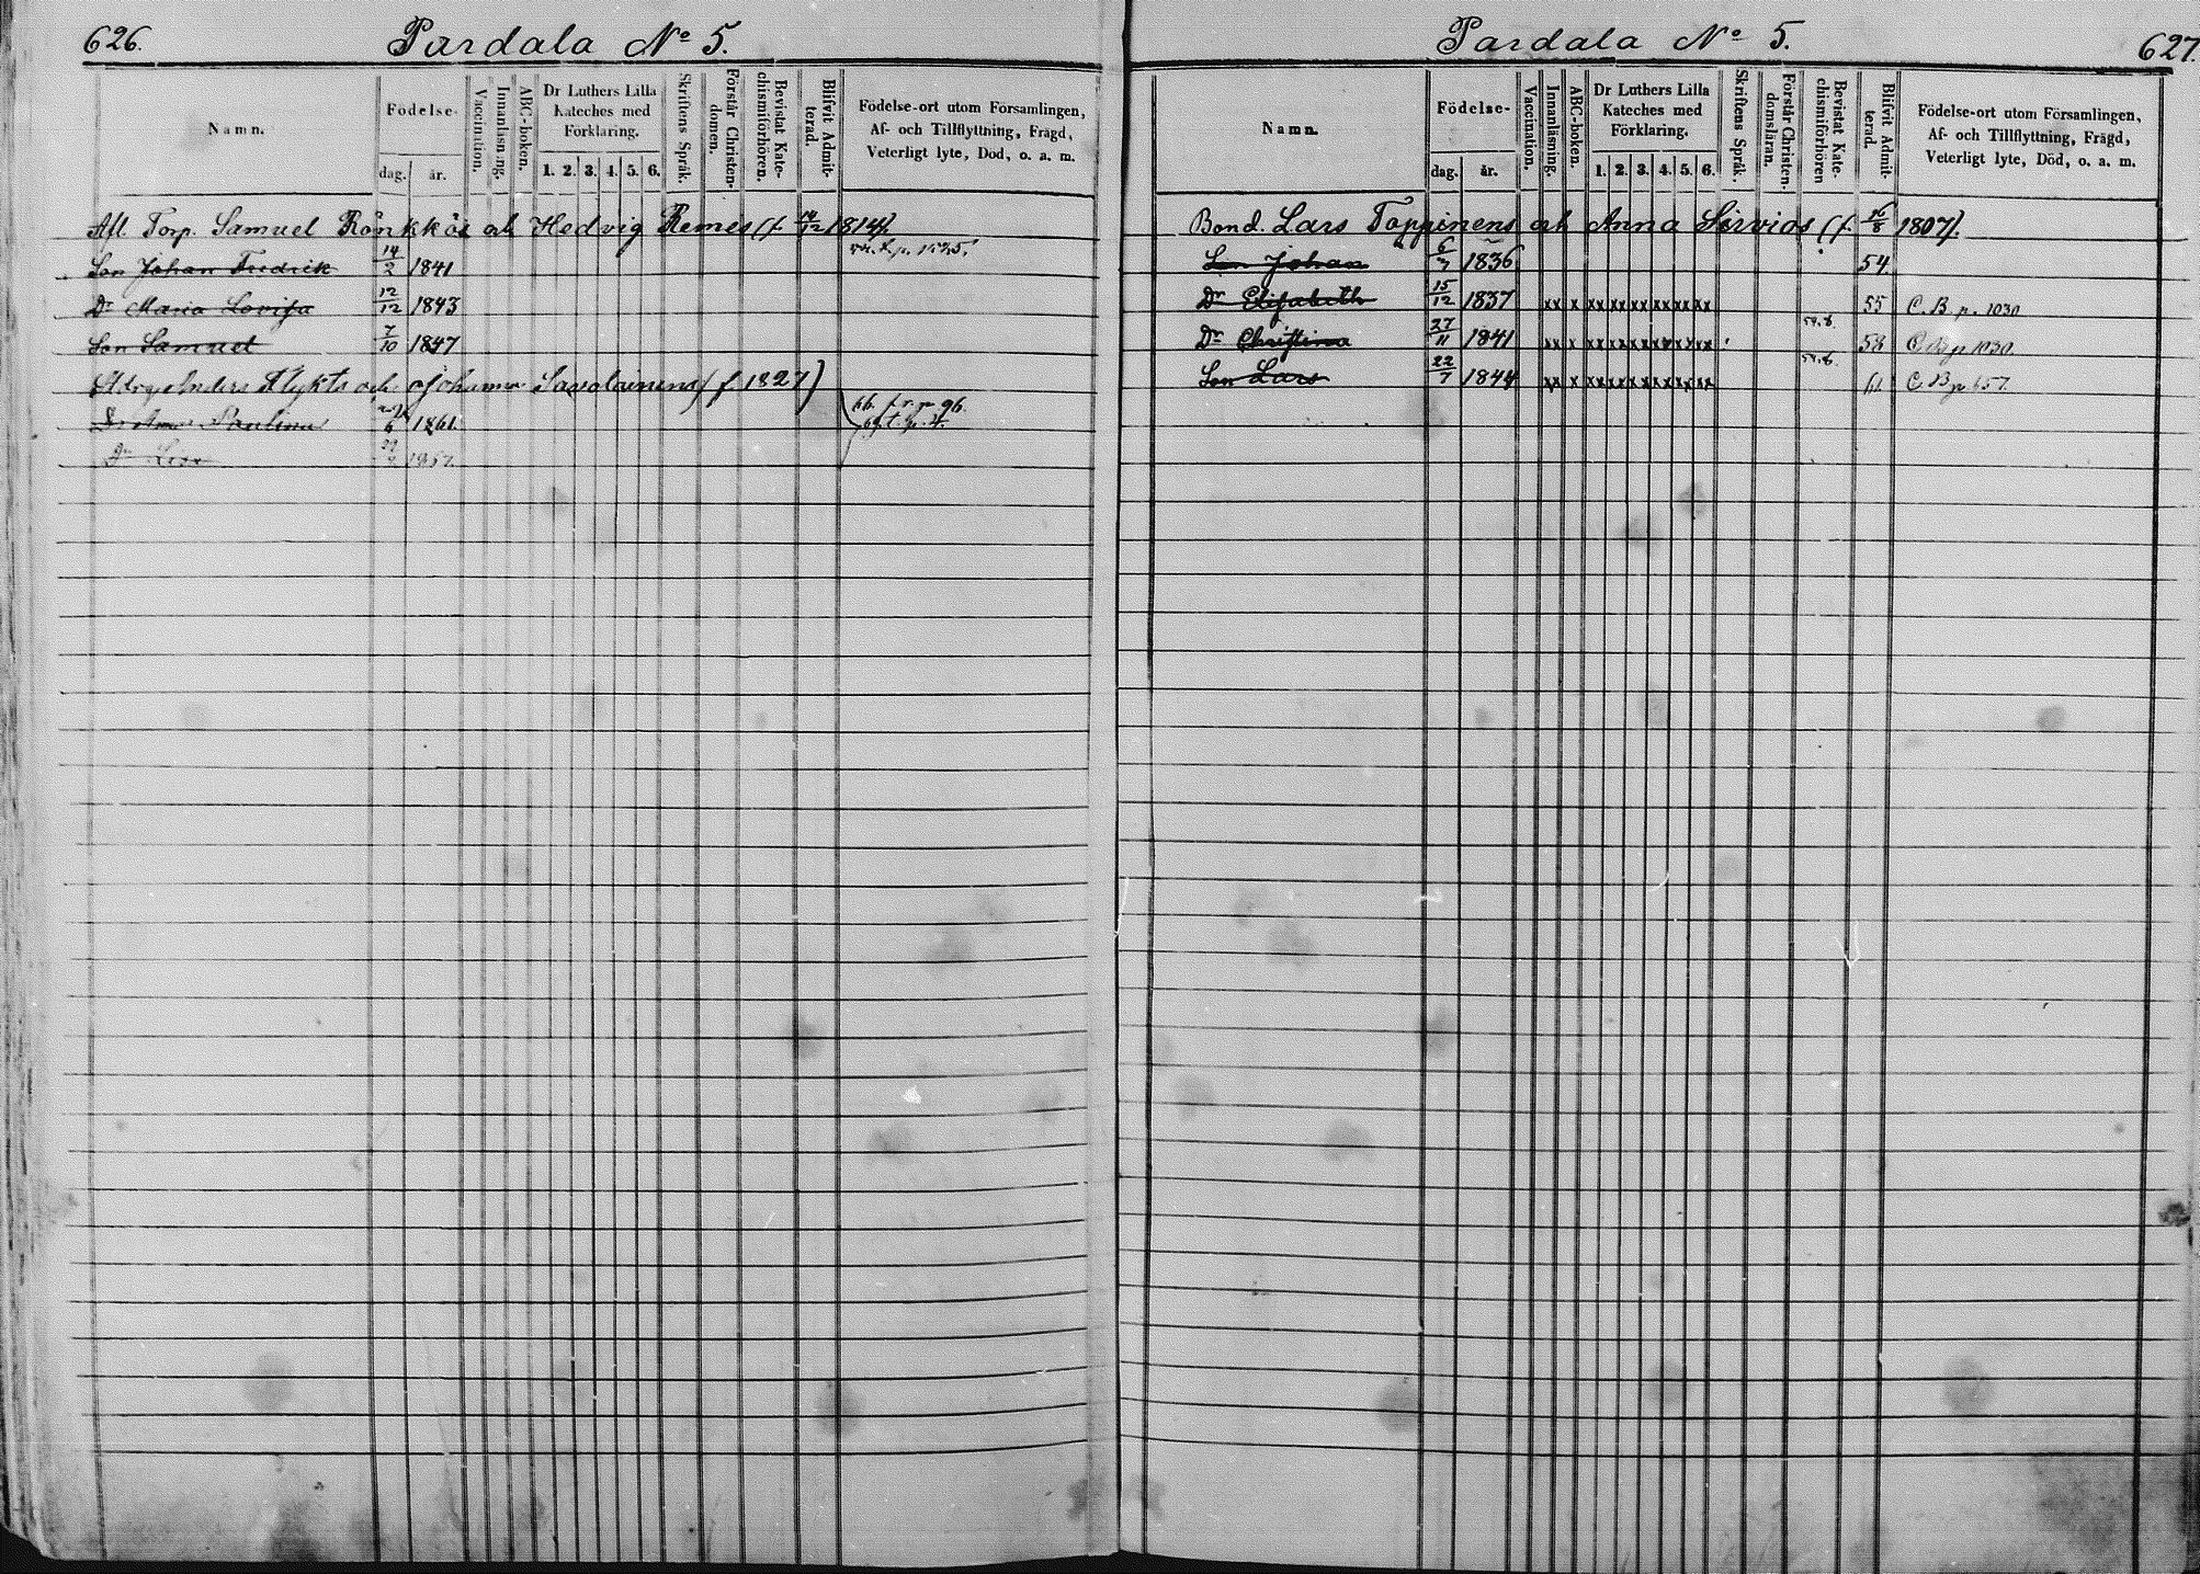 626.
Pardala No 5.
Namn.
Födelse-
dag.
år.
Vaccination.
Innanläsning.
ABC-boken.
Dr Luthers Lilla
Kateches med
Förklaring.
1. 2. 3. 4. 5. 6.
Skriftens Språk.
Förstår Christen-
domen.
Bevistat Kate-
chismiförhören.
Blifvit Admit-
terad.
Födelse-ort utom Församlingen,
Af- och Tillflyttning, Frägd,
Veterligt lyte, Död, o. a. m.
Afl. Torp. Samuel Rönkkös och Hedvig Remes (f. 14/12 1814).
Son Johan Fredrik 14/2 1841
Dr Maria Lovisa 12/12 1843
Son Samuel 7/10 1847
Anders Flykts och Johanna Savolainens (f 1827)
Dr Anna Paulina 6 1861
Dr Lisa 1857
Pardala No 5.
627.
Namn.
Födelse-
dag.
år.
Vaccination.
Innanläsning.
ABC-boken.
Dr Luthers Lilla
Kateches med
Förklaring.
1. 2. 3. 4. 5. 6.
Skriftens Språk.
Förstår Christen-
domsläran.
Bevistat Kate-
chismiförhören
Blifvit Admit-
terad.
Födelse-ort utom Församlingen,
Af- och Tillflyttning, Frägd,
Veterligt lyte, Död, o. a. m.
Bond. Lars Toppinens och Anna Sirviös (f. 16/8 1807).
Son Johan 6/7 1836 54
Dr Elisabeth 15/12 1837 xx x xx xx xx xx xx xx 55 C. B p. 1030
Dr Christina 27/11 1841 xx x xx xx xx xx xx xx 58 C B p 1030.
Son Lars 22/7 1844 xx x xx xx xx xx xx xx 61 C B p 657.